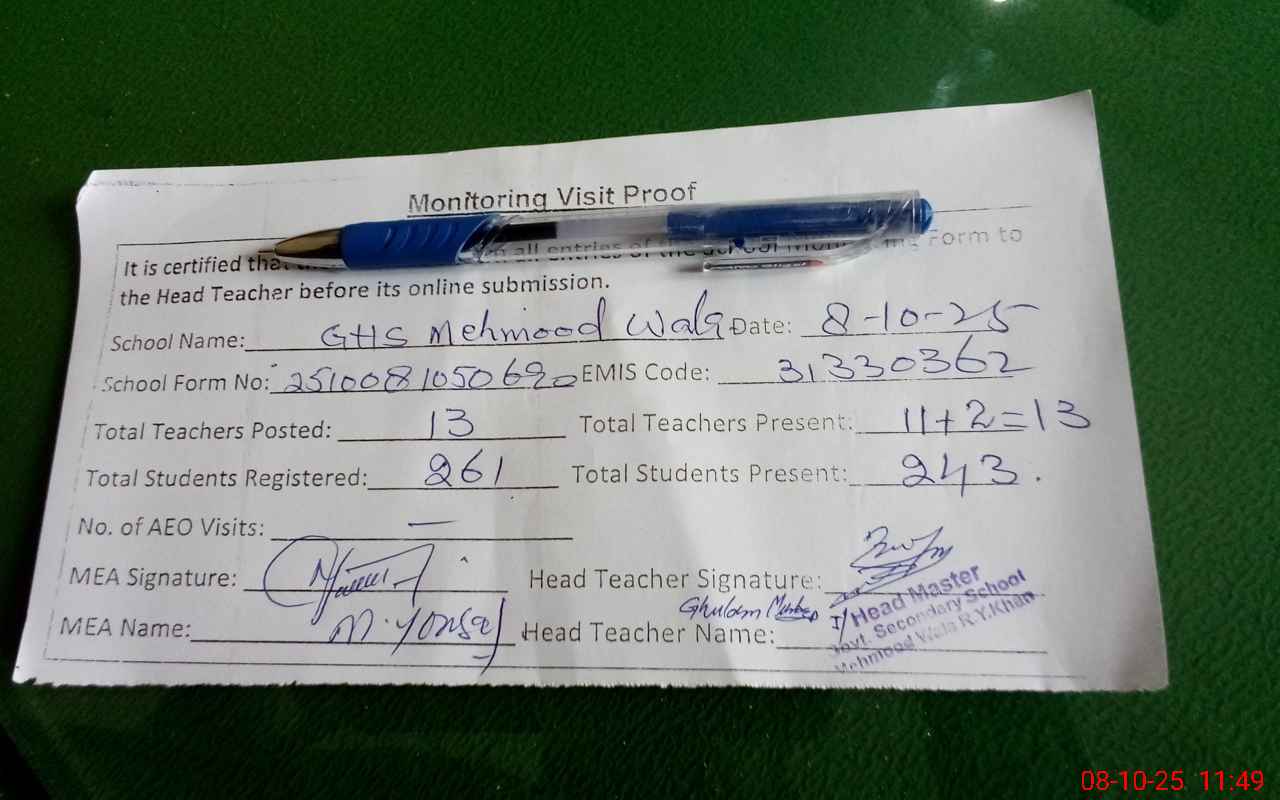 Monitoring Visit Proof
It is certified that all entries of the school Form to
the Head Teacher before its online submission.
School Name: GHS Mehmood Wala Date: 8-10-25
School Form No: 2510081050690 EMIS Code: 31330362
Total Teachers Posted: 13 Total Teachers Present: 11+2=13
Total Students Registered: 261 Total Students Present: 243.
No. of AEO Visits: —
MEA Signature: Head Teacher Signature:
MEA Name: Head Teacher Name: Ghulam
I/Head Master
Govt. Secondary School
Mehmood Wala R.Y.Khan
08-10-25 11:49